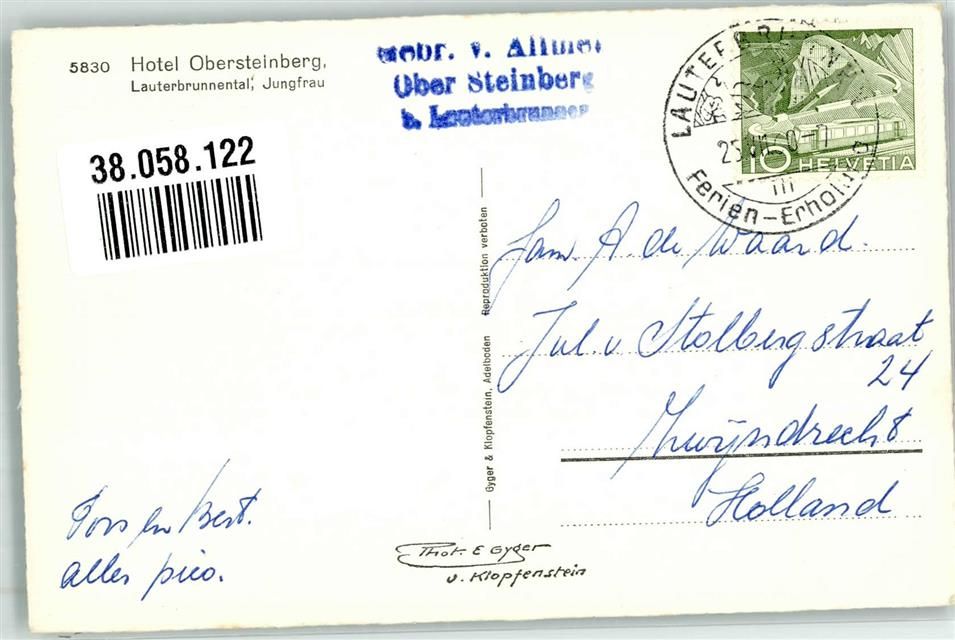 5830 Hotel Obersteinberg,
Lauterbrunnental, Jungfrau
Gebr. v. Allmen
Ober Steinberg
b. Lauterbrunnen
LAUTERBRUNNEN
25. 
Ferien-Erholung
10 HELVETIA
38.058.122
Fam. A de Waard.
Jul. v Stolbergstraat
24
Zwijndrecht
Holland
Reproduktion verboten
Gyger & Klopfenstein, Adelboden
en Bert.
alles pico.
Phot. E Gyger
v. Klopfenstein